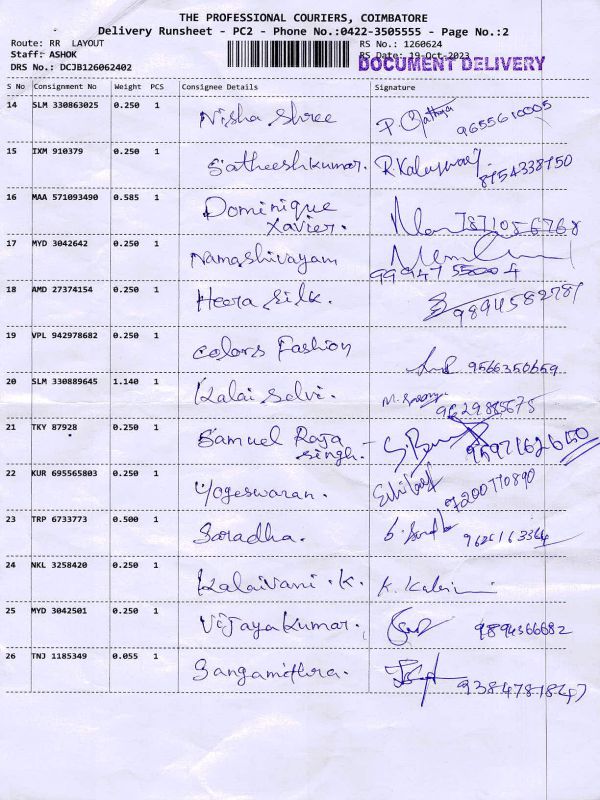 THE PROFESSIONAL COURIERS, COIMBATORE
Delivery Runsheet - PC2 - Phone No.:0422-3505555 - Page No.:2
Route: RR LAYOUT
RS No.: 1260624
Staff: ASHOK
RS Date: 19-Oct-2023
DOCUMENT DELIVERY
DRS No.: DCJB126062402
S No Consignment No Weight PCS Consignee Details Signature
14 SLM 330863025 0.250 1 Nisha Shree
9655610005
15 IXM 910379 0.250 1 Satheeshkumar.
8754338750
16 MAA 571093490 0.585 1 Dominique
Xavier. 7871056768
17 MYD 3042642 0.250 1 Namashivayam
99947 55000 4
18 AMD 27374154 0.250 1 Heera Silk.
9894582781
19 VPL 942978682 0.250 1 Colors Fashion
9566350659
20 SLM 330889645 1.140 1 Kalai Selvi.
9629885675
21 TKY 87928 0.250 1 Samuel Raja
Singh. 9597162650
22 KUR 695565803 0.250 1 Yogeswaran.
7200770890
23 TRP 6733773 0.500 1 Saradha.
24 NKL 3258420 0.250 1 Kalaivani.K.
25 MYD 3042501 0.250 1 Vijaya Kumar. 9894366682
26 TNJ 1185349 0.055 1 Sangamithra.
9384781847